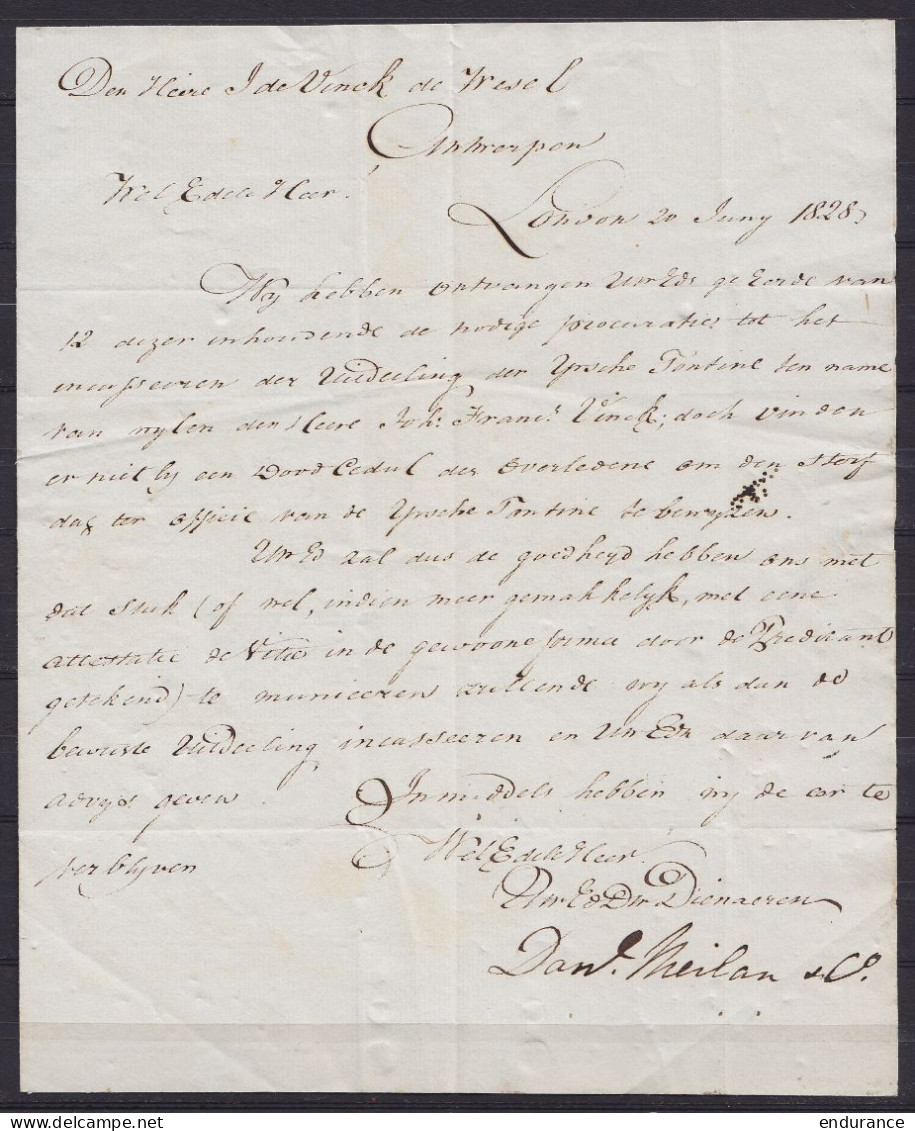 Den Heere J de Vinck de Wesel
Antwerpen
Wel Edele Heer.
London 20 Juny 1828
Wy hebben ontvangen UwEds geEerde van
12 dezer inhoudende de nodige procuraties tot het
incasseeren der Uitdeeling der Yrsche Tontine ten name
van wylen den Heere Joh: Franc: Vinck; doch vinden
er niet by een Dood Cedul des Overledene om den sterf
dag ter officie van de Yrsche Tontine te bewyzen.
UwEd zal dus de goedheyd hebben ons met
dat stuk (of wel, indien meer gemakkelyk, met eene
attestatie de Vita in de gewoone forma door de Predicant
getekend) te municeeren zullende wy als dan de
bewuste Uitdeeling incasseeren en UwEdn daar van
advys geven. Inmiddels hebben wy de eer te
verblyven
Wel Edele Heer.
UwEd Dw Dienaeren
Danl. Meilan & Co.
endurance
delcampe.net